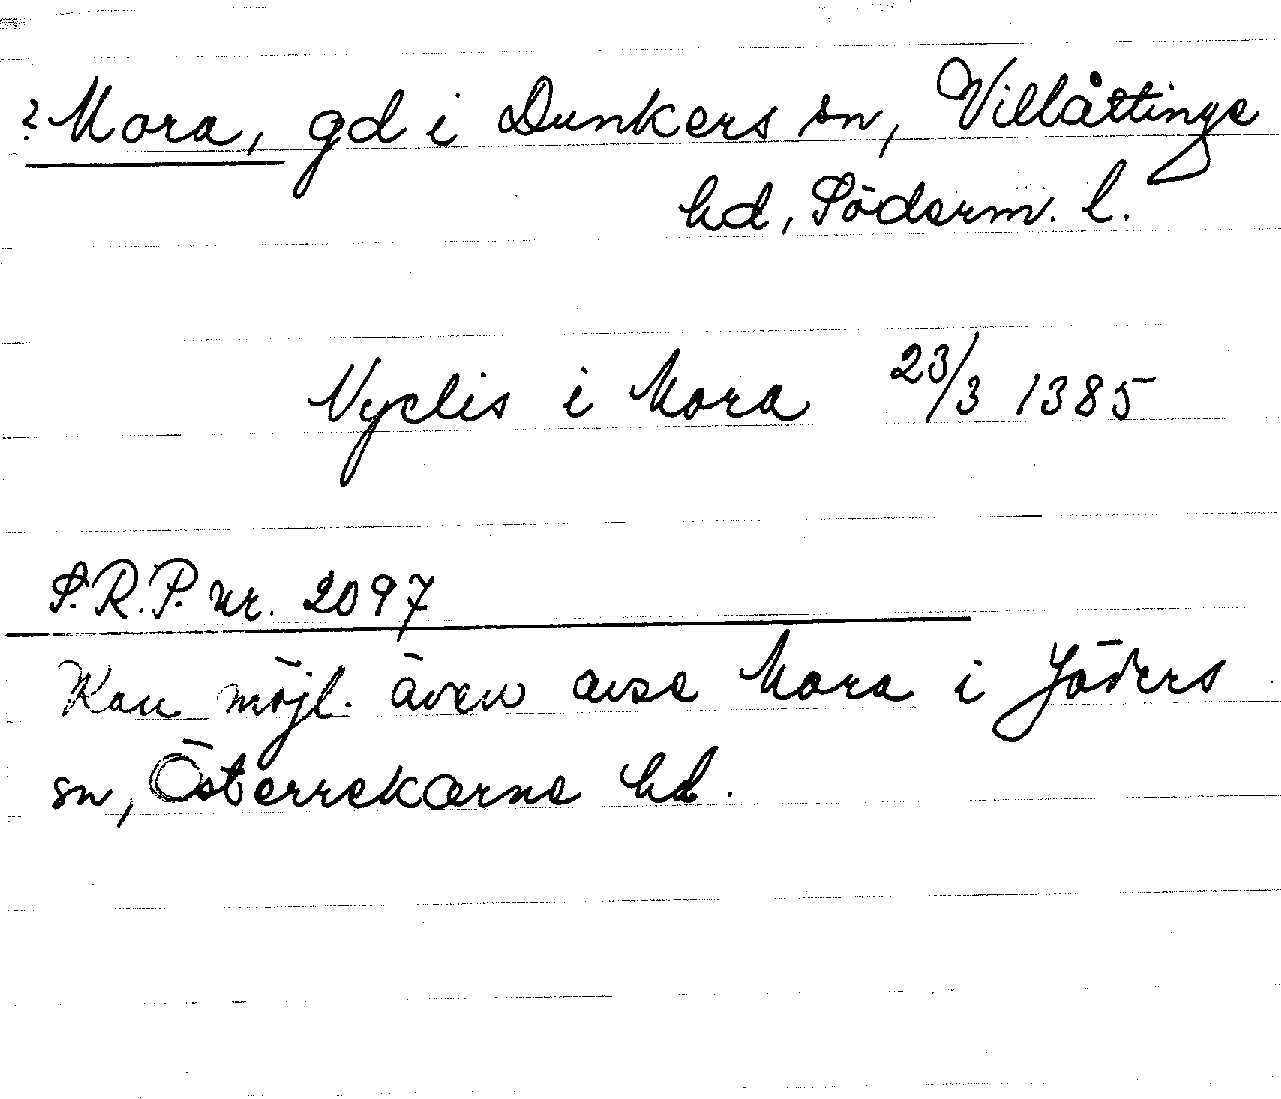 ? Mora, gd i Dunkers sn, Villåttinge
hd, Söderm. l.
Nyclis i Mora 23/3 1385
S.R.P. nr. 2097
Kan möjl. även avse Mora i Jäders
sn, Österrekarne hd.